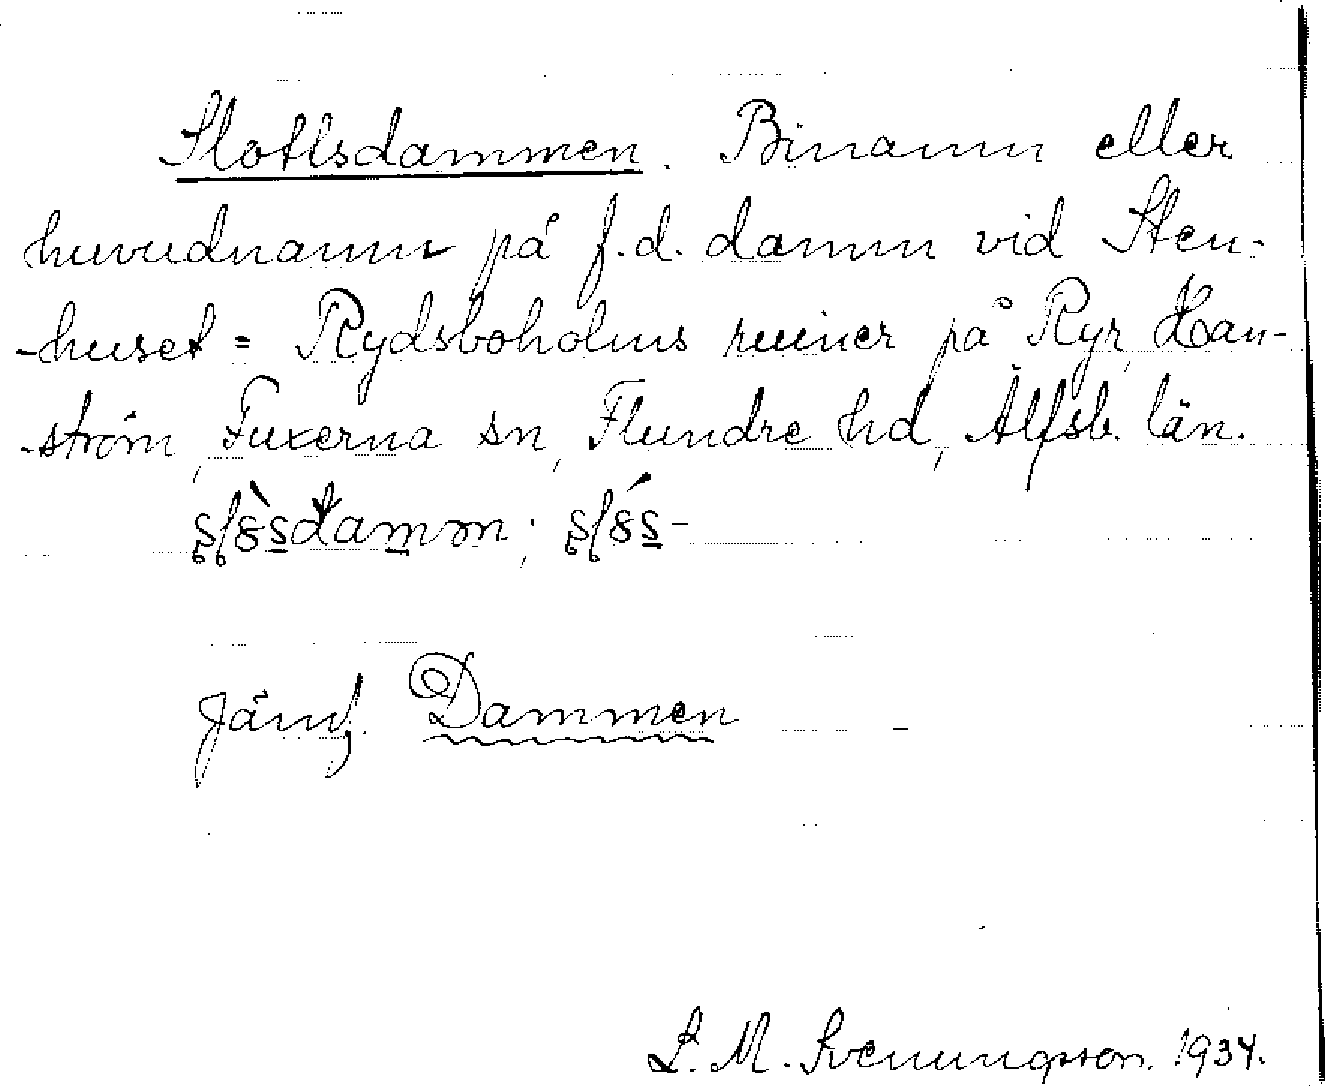 Slottsdammen. Binamn eller
huvudnamn på f.d. damm vid Sten-
-huset = Rydsboholms ruiner på Ryr, Han-
-ström, Fuxerna sn, Flundre hd, Älfsb. län.
Jämf. Dammen
S. M. Svenungsson. 1934.